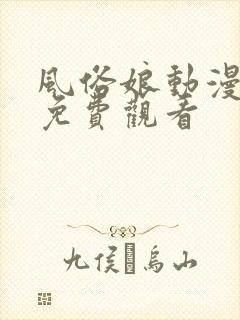 風俗娘動漫
免費觀看
九侯烏山